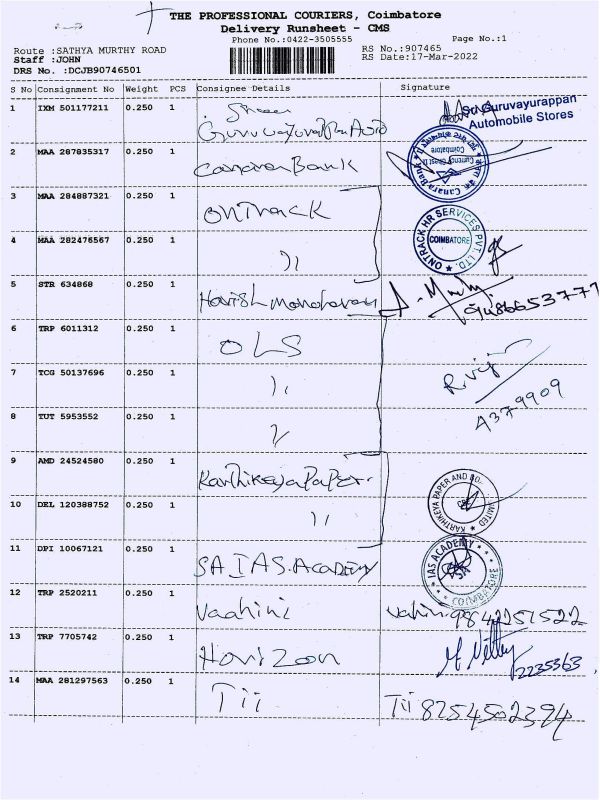 THE PROFESSIONAL COURIERS, Coimbatore
Delivery Runsheet - CMS
Phone No.:0422-3505555
Page No.:1
Route :SATHYA MURTHY ROAD
RS No.:907465
Staff :JOHN
RS Date:17-Mar-2022
DRS No. :DCJB90746501
S No Consignment No Weight PCS Consignee Details Signature
1 IXM 501177211 0.250 1 Sree
Guruvayurappan Auto
Sri Guruvayurappan
Automobile Stores
2 MAA 287835317 0.250 1 Canara Bank
Canara Bank
Currency Chest II
Coimbatore
3 MAA 284887321 0.250 1 Ontrack
ONTRACK HR SERVICES PVT. LTD.
COIMBATORE
4 MAA 282476567 0.250 1 ),
5 STR 634868 0.250 1 Harish manoharan
9486653777
6 TRP 6011312 0.250 1 OLS
7 TCG 50137696 0.250 1 ),
R. vij
A379909
8 TUT 5953552 0.250 1
9 AMD 24524580 0.250 1 Karthikeya Paper.
KARTHIKEYA PAPER AND BO LIMITED
CBE
10 DEL 120388752 0.250 1 ),
11 DPI 10067121 0.250 1 SA IAS. Academy
IAS ACADEMY
COIMBATORE
12 TRP 2520211 0.250 1 Vaahini Vahini 9842251522
13 TRP 7705742 0.250 1 Horizon 2235363
14 MAA 281297563 0.250 1 Tii Tii 8254502394